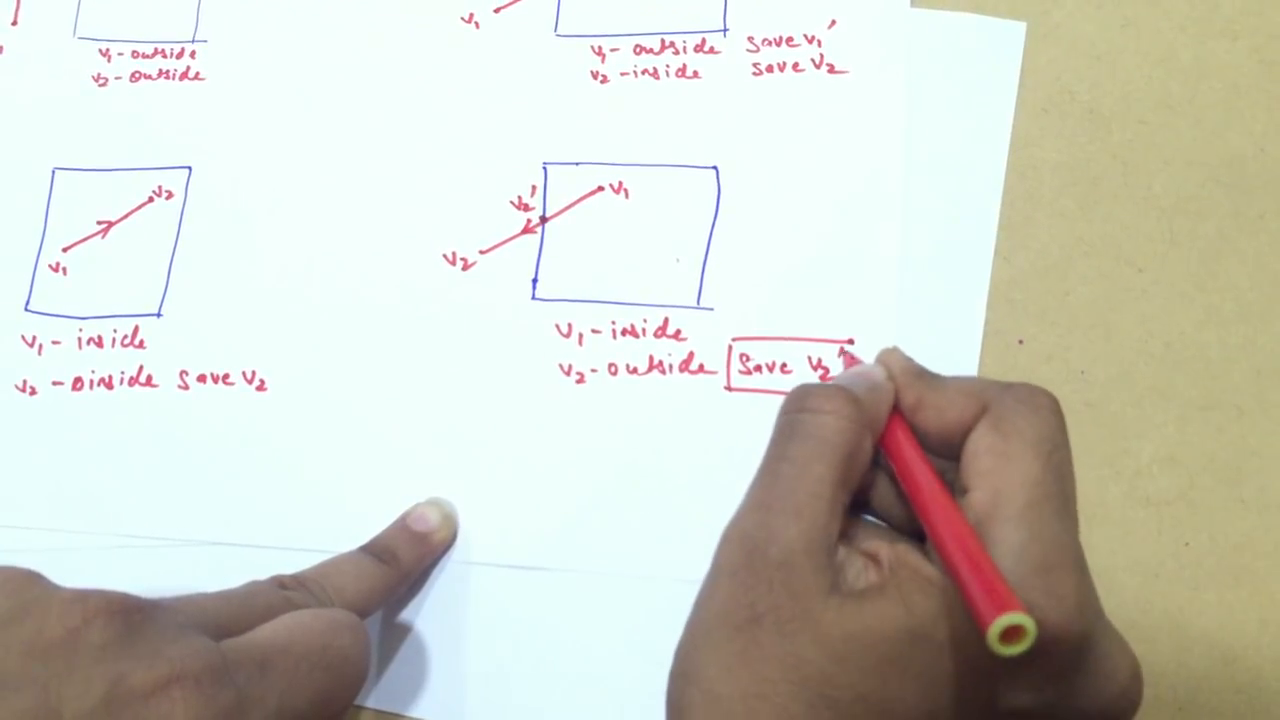 v₁ - outside
v₂ - outside
v₁
v₁ - outside save v₁'
v₂ - inside save v₂
v₂
v₁
v₁ - inside
v₂ - oinside save v₂
v₂'
v₁
v₂
v₁ - inside
v₂ - outside Save v₂'